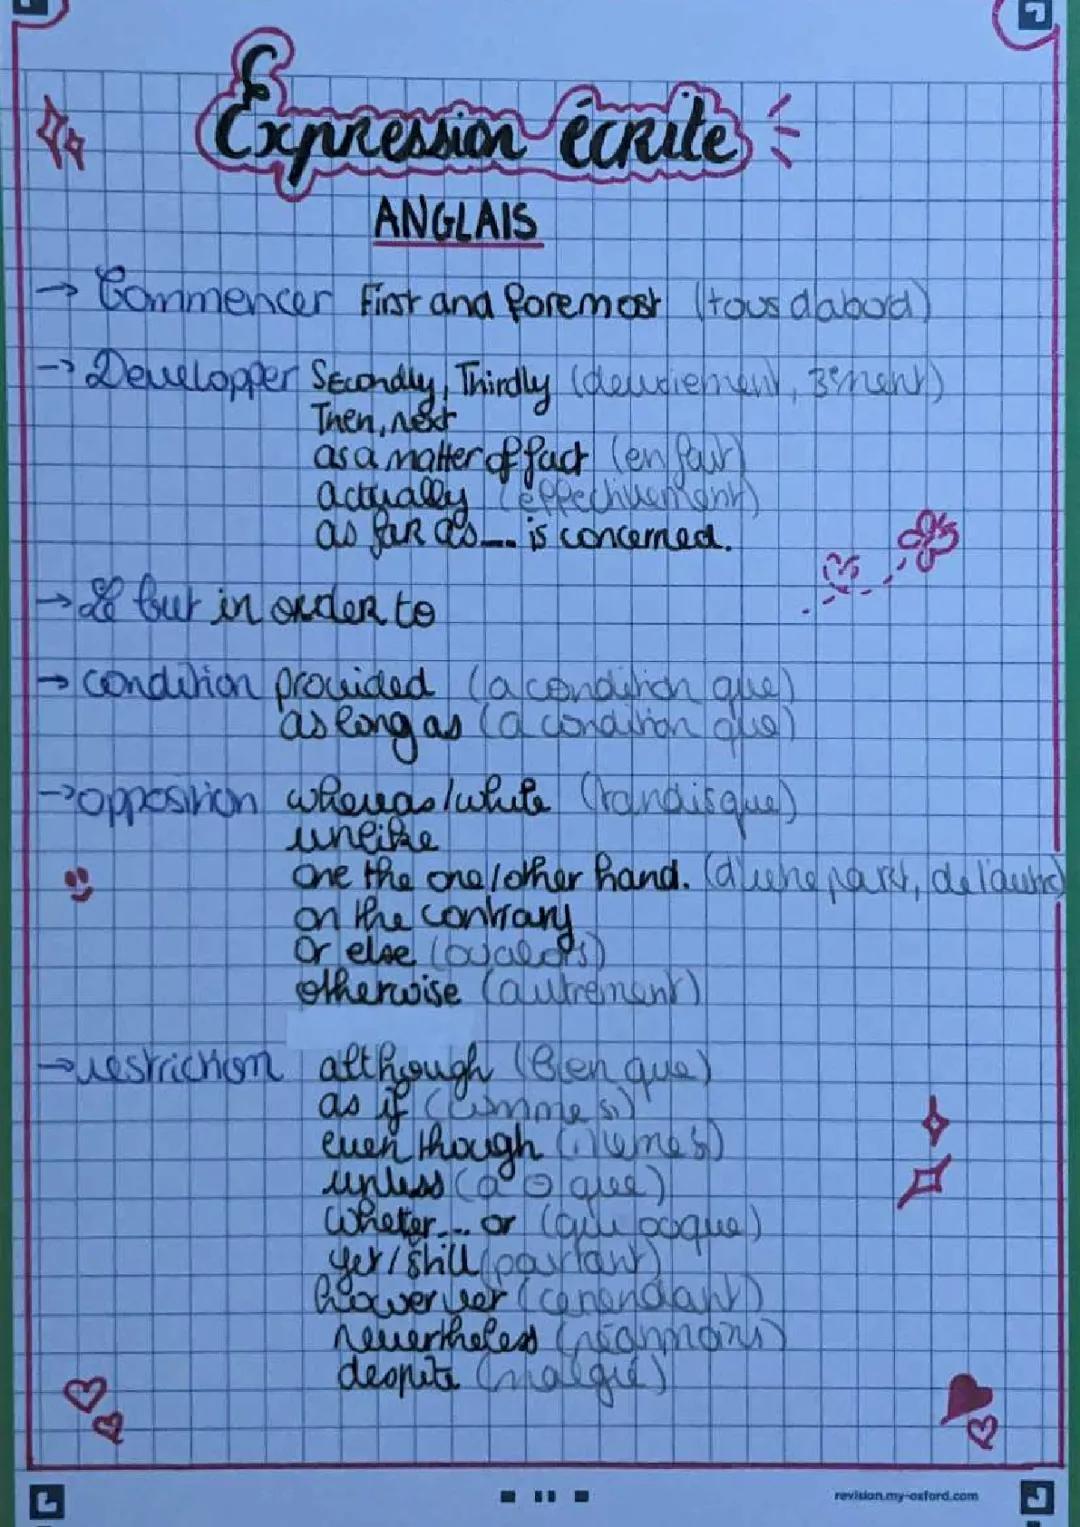 Expression écrite
ANGLAIS
→ Commencer First and foremost (tous dabord)
→ Developper Secondly, Thirdly (deuxiement, 3ement)
Then, next
as a matter of fact (en fait)
actually (effectivement)
as far as... is concerned.
→ Le but in order to
→ condition provided (a condition que)
as long as (a condition que)
→ opposition whereas/while (tandisque)
unlike
one the one/other hand. (d'une part, de l'autre)
on the contrary
Or else (oualors)
otherwise (autrement)
→ restriction although (Bien que)
as if (comme si)
even though (même si)
unless (a que)
Wheter... or (que)
yet/still (pourtant)
howerver (cependant)
nevertheless (néanmoins)
despite (malgré)
revision.my-oxford.com